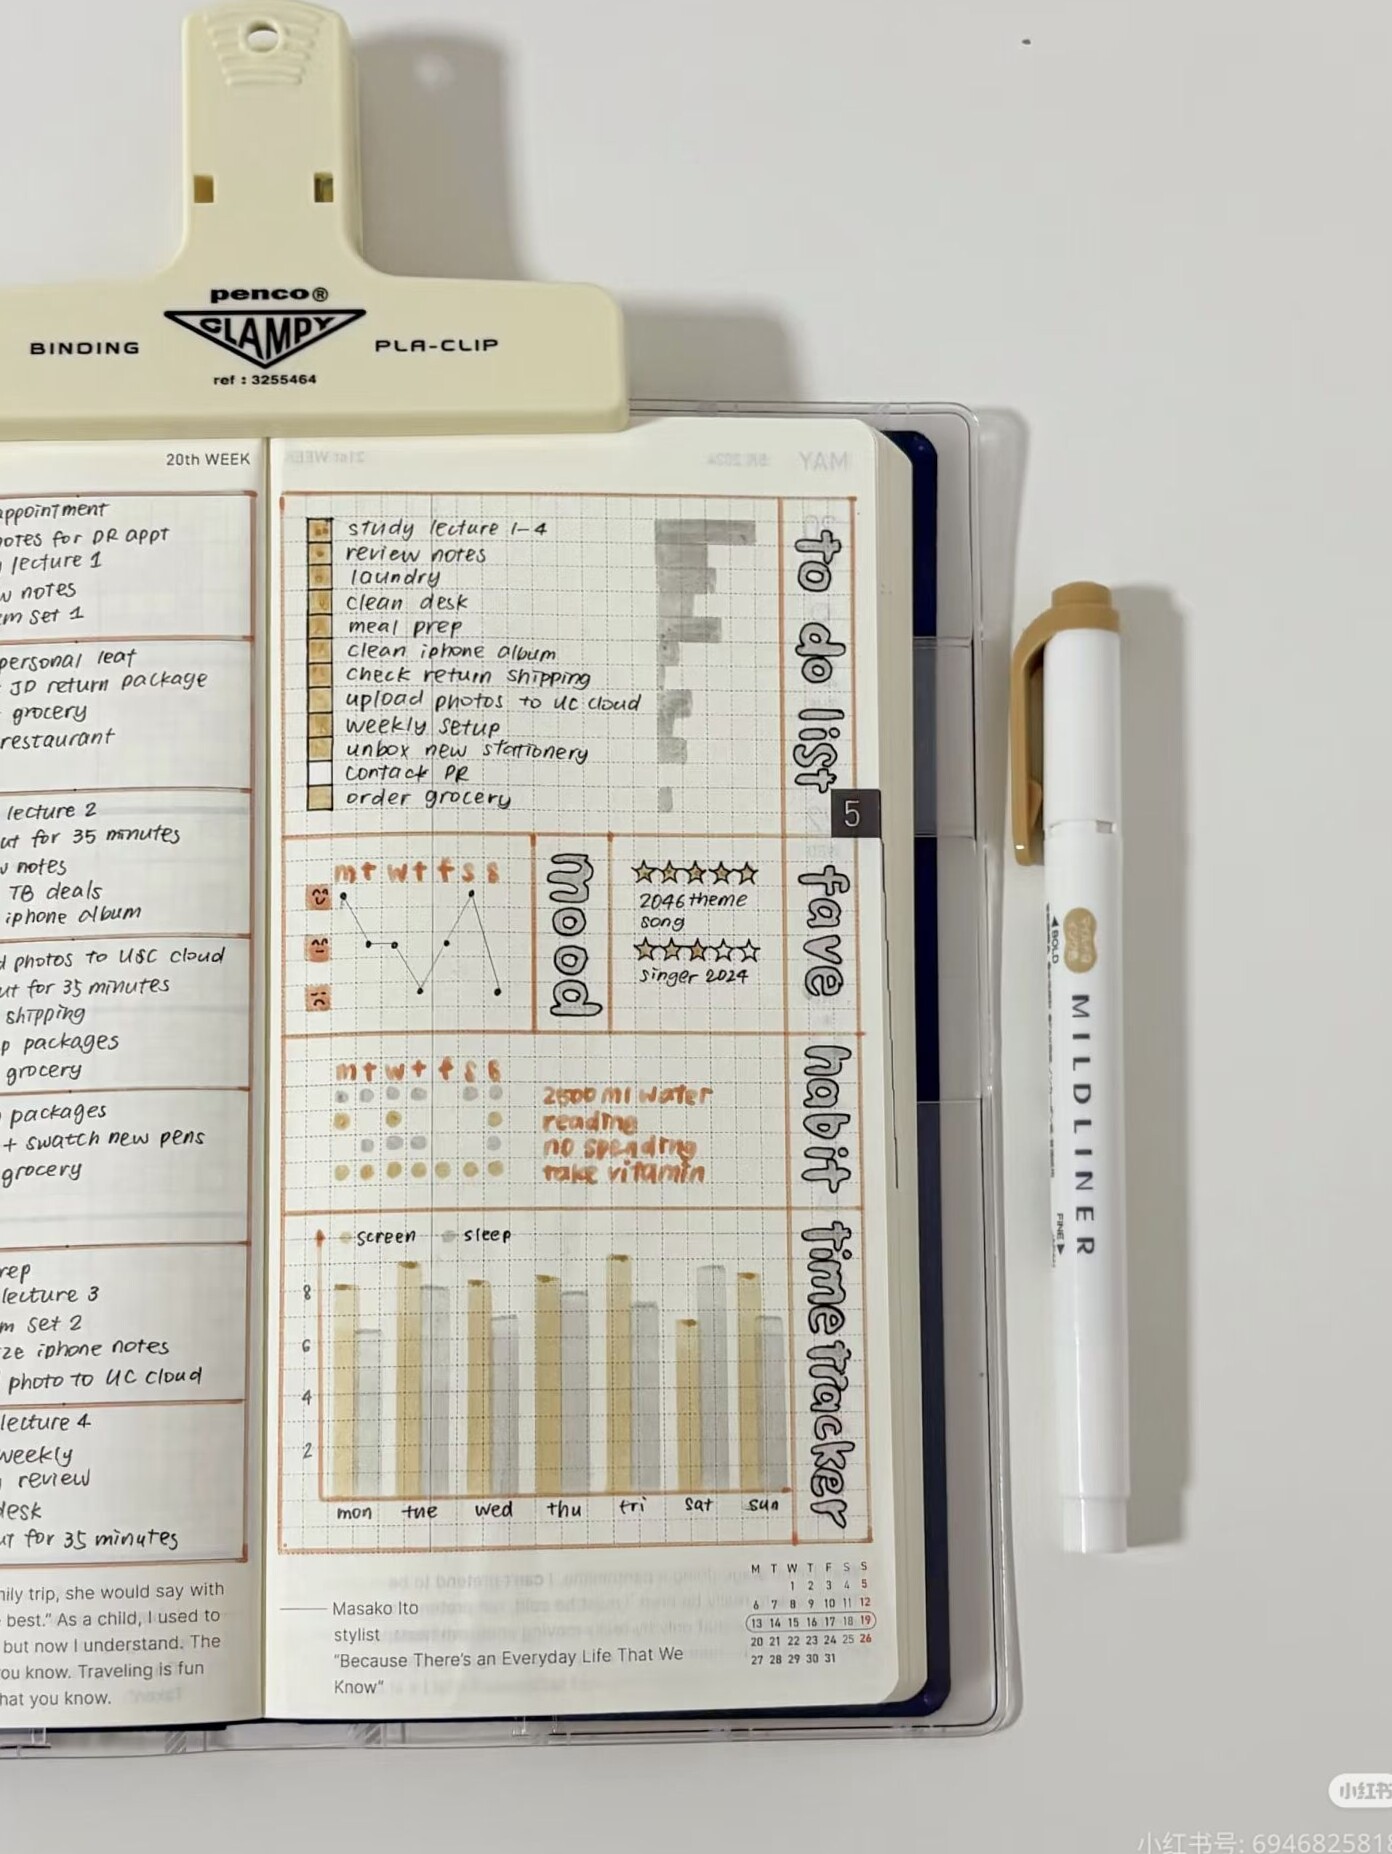 penco®
CLAMPY
BINDING
PLA-CLIP
ref : 3255464
20th WEEK
appointment
notes for DR appt
lecture 1
notes
set 1
personal leaf
JD return package
grocery
restaurant
lecture 2
for 35 minutes
notes
TB deals
iphone album
photos to USC cloud
for 35 minutes
shipping
packages
grocery
packages
+ swatch new pens
grocery
lecture 3
set 2
iphone notes
photo to UC cloud
lecture 4
weekly
review
desk
for 35 minutes
trip, she would say with
best." As a child, I used to
but now I understand. The
you know. Traveling is fun
that you know.
MAY
21st WEEK
to do list
study lecture 1-4
review notes
laundry
clean desk
meal prep
clean iphone album
check return shipping
upload photos to UC cloud
weekly setup
unbox new stationery
contack PR
order grocery
5
m t w t f s s
mood
fave
2046 theme
song
singer 2024
habit
m t w t f s s
2500 ml water
reading
no spending
take vitamin
time tracker
screen sleep
8
6
4
2
mon tue wed thu fri sat sun
Masako Ito
stylist
"Because There's an Everyday Life That We
Know"
M T W T F S S
1 2 3 4 5
6 7 8 9 10 11 12
13 14 15 16 17 18 19
20 21 22 23 24 25 26
27 28 29 30 31
BOLD
MILDLINER
FINE
小红书
小红书号: 6946825818